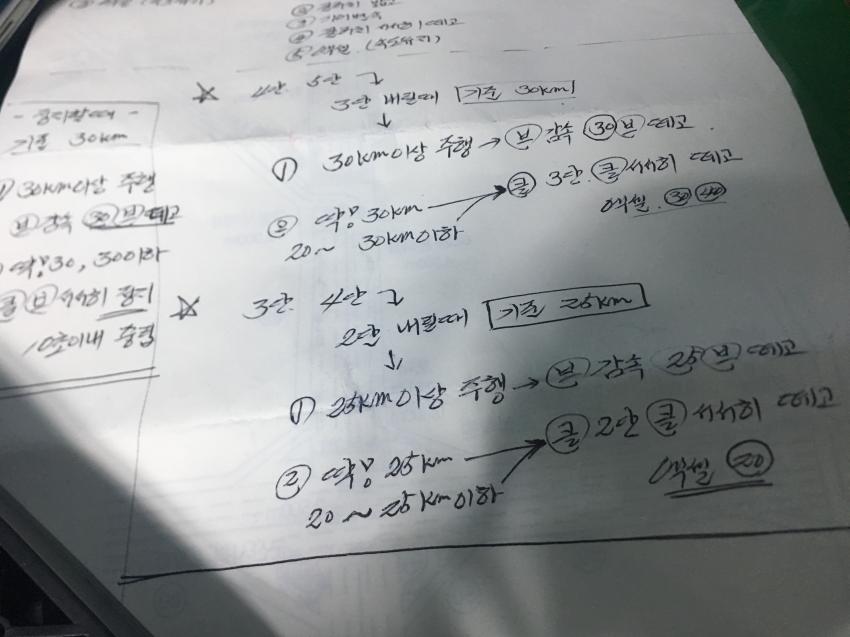 ③ 기어변속
④ 클러치 서서히 떼고
⑤
- 정지할때 -
기준 30km
① 30km이상 주행
브 감속 30 브 떼고
30, 30이하
클 브 서서히 정지
10초이내 중립
☆ 4단 5단
3단 내릴때 기준 30km
① 30km이상 주행 → 브 감속 30 브 떼고.
② 딱 30km
20~ 30km이하
클 3단. 클 서서히 떼고
악셀. 30 40
☆ 3단. 4단
2단 내릴때 기준 25km
① 25km이상 주행 → 브 감속 25 브 떼고
② 딱 25km
20~25km이하
클 2단 클 서서히 떼고
악셀 20